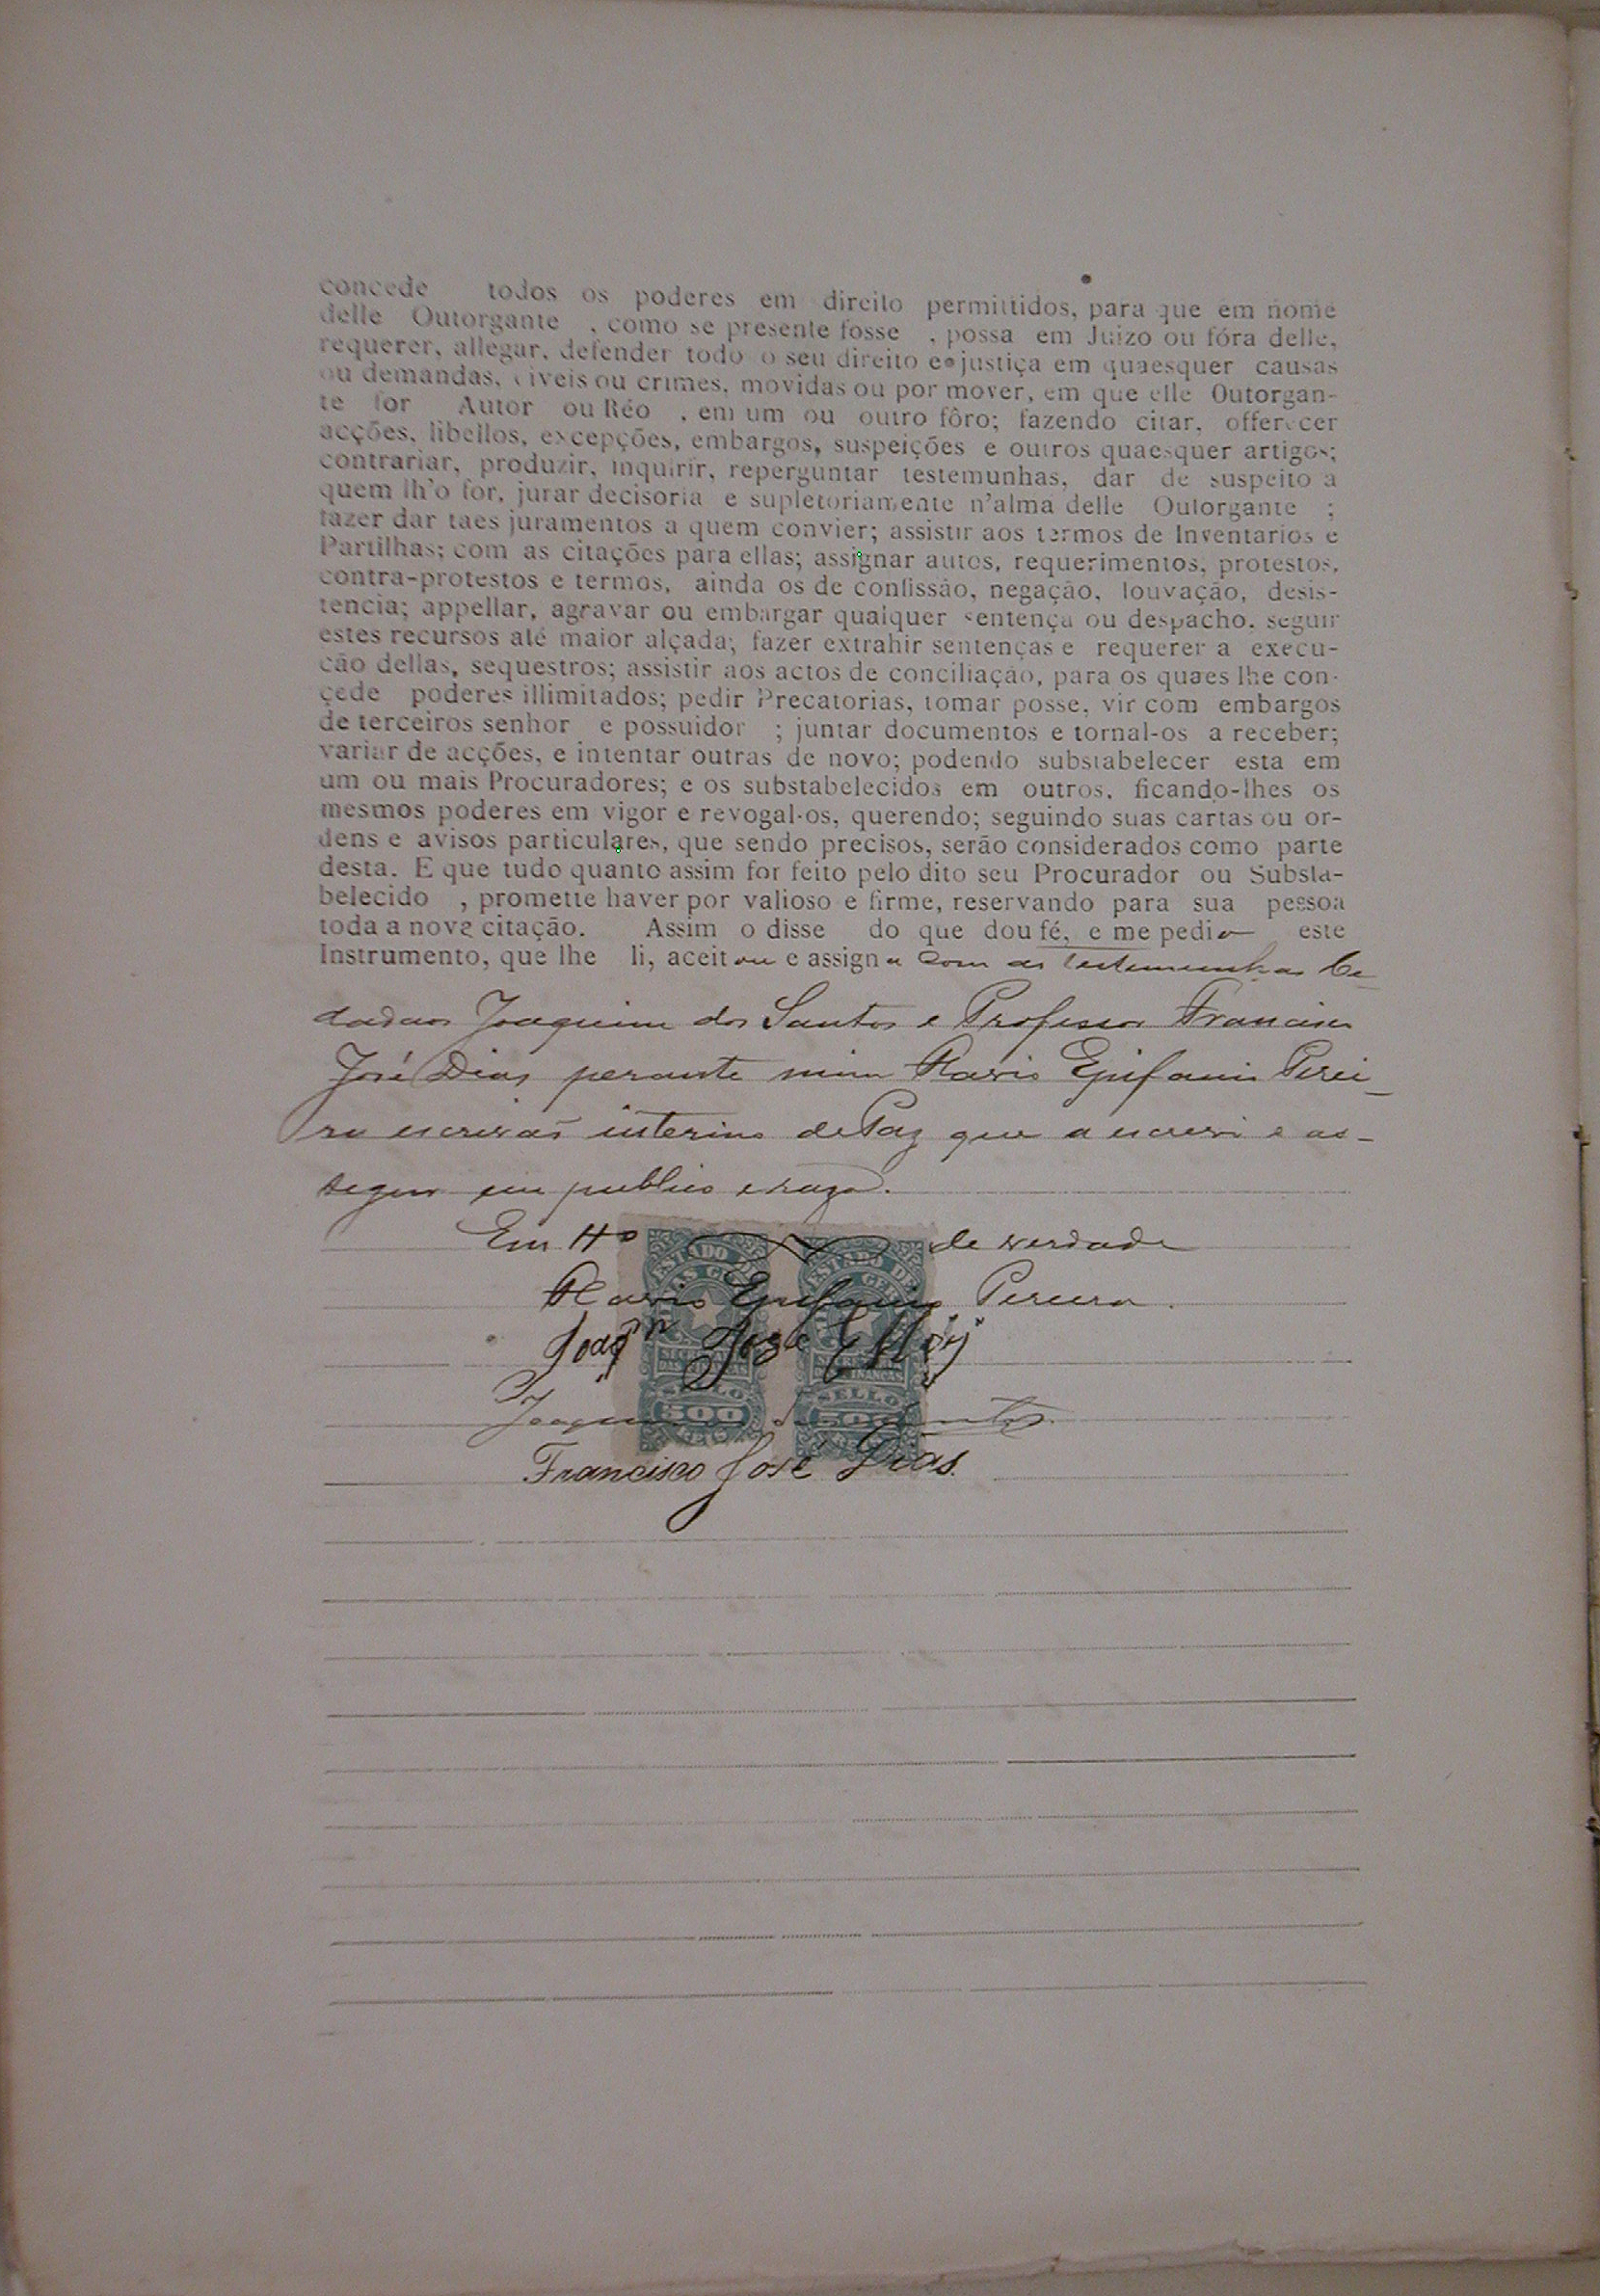 concede todos os poderes em direito permittidos, para que em nome
delle Outorgante , como se presente fosse , possa em Juizo ou fóra delle,
requerer, allegar, defender todo o seu direito e justiça em quaesquer causas
ou demandas, civeis ou crimes, movidas ou por mover, em que elle Outorgan-
te for Autor ou Réo , em um ou outro fôro; fazendo citar, offerecer
acções, libellos, excepções, embargos, suspeições e outros quaesquer artigos;
contrariar, produzir, inquirir, reperguntar testemunhas, dar de suspeito a
quem lh'o for, jurar decisoria e supletoriamente n'alma delle Outorgante ;
fazer dar taes juramentos a quem convier; assistir aos termos de Inventarios e
Partilhas; com as citações para ellas; assignar autos, requerimentos, protestos,
contra-protestos e termos, ainda os de confissão, negação, louvação, desis-
tencia; appellar, agravar ou embargar qualquer sentença ou despacho, seguir
estes recursos até maior alçada; fazer extrahir sentenças e requerer a execu-
ção dellas, sequestros; assistir aos actos de conciliação, para os quaes lhe con-
cede poderes illimitados; pedir Precatorias, tomar posse, vir com embargos
de terceiros senhor e possuidor ; juntar documentos e tornal-os a receber;
variar de acções, e intentar outras de novo; podendo substabelecer esta em
um ou mais Procuradores; e os substabelecidos em outros, ficando-lhes os
mesmos poderes em vigor e revogal-os, querendo; seguindo suas cartas ou or-
dens e avisos particulares, que sendo precisos, serão considerados como parte
desta. E que tudo quanto assim for feito pelo dito seu Procurador ou Substa-
belecido , promette haver por valioso e firme, reservando para sua pessoa
toda a nova citação. Assim o disse do que dou fé, e me pedio este
Instrumento, que lhe li, aceitou e assigna com as testemunhas Ci-
dadaos Joaquim dos Santos e Professor Francisco
José Dias perante mim Flavio Epifanio Perei-
ra escrivaõ interino de Paz que a escrevi e as-
signo em publico e raso.
Em tto de verdade
Flavio Epifanio Pereira.
Joaqm José Elloy
Joaquim dos Santos.
Francisco José Dias.
ESTADO DE
ESTADO DE
SELLO
SELLO
500
500